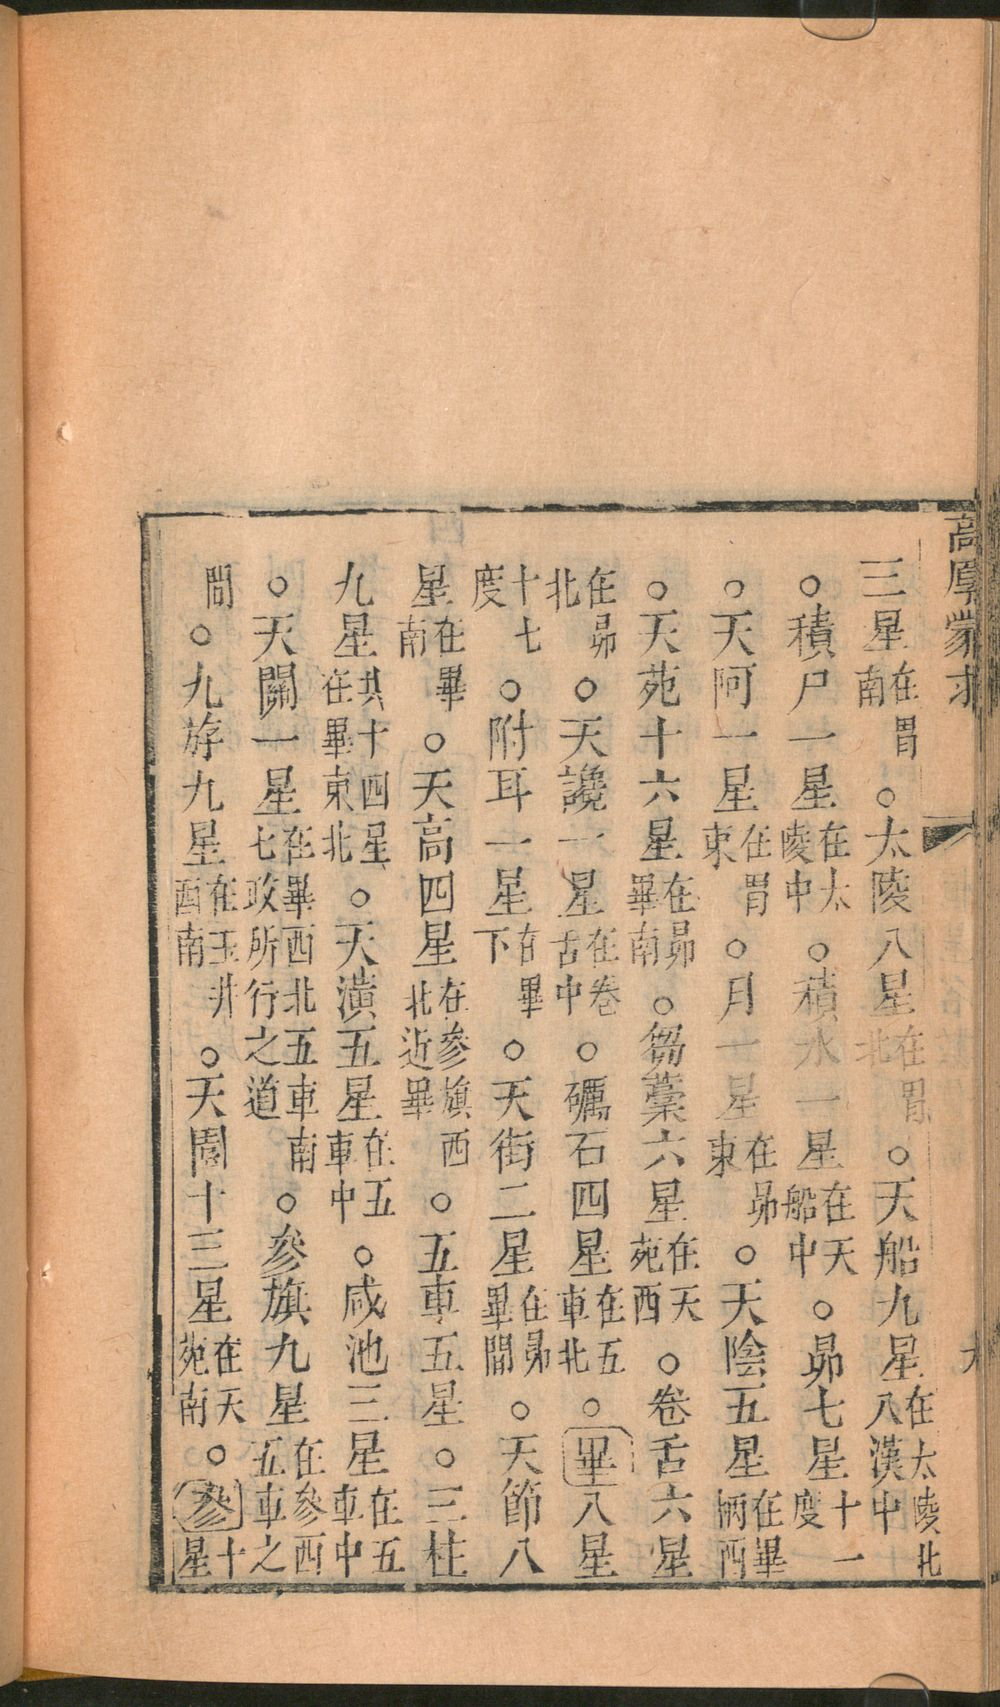 高厚蒙求
三星在胃南○太陵八星在胃北○天船九星在太陵北八漢中
○積尸一星在太陵中○積水一星在天船中○昴七星十一度
○天阿一星在胃東○月一星在昴東○天陰五星在畢柄西
○天苑十六星在昴畢南○芻藁六星在天苑西○卷舌六星
在昴北○天讒一星在卷舌中○礪石四星在五車北○畢八星
十七度○附耳一星在畢下○天街二星在昴畢間○天節八
星在畢南○天高四星在參旗西北近畢○五車五星○三柱
九星共十四星在畢東北○天潢五星在五車中○咸池三星在五車中
○天關一星在畢西北五車南七政所行之道○參旗九星在參西五車之
間○九斿九星在玉井西南○天園十三星在天苑南○參十星